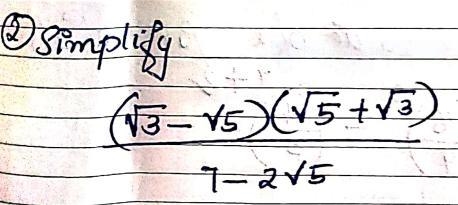 ② Simplify
(√3 − √5)(√5 + √3)
7 − 2√5